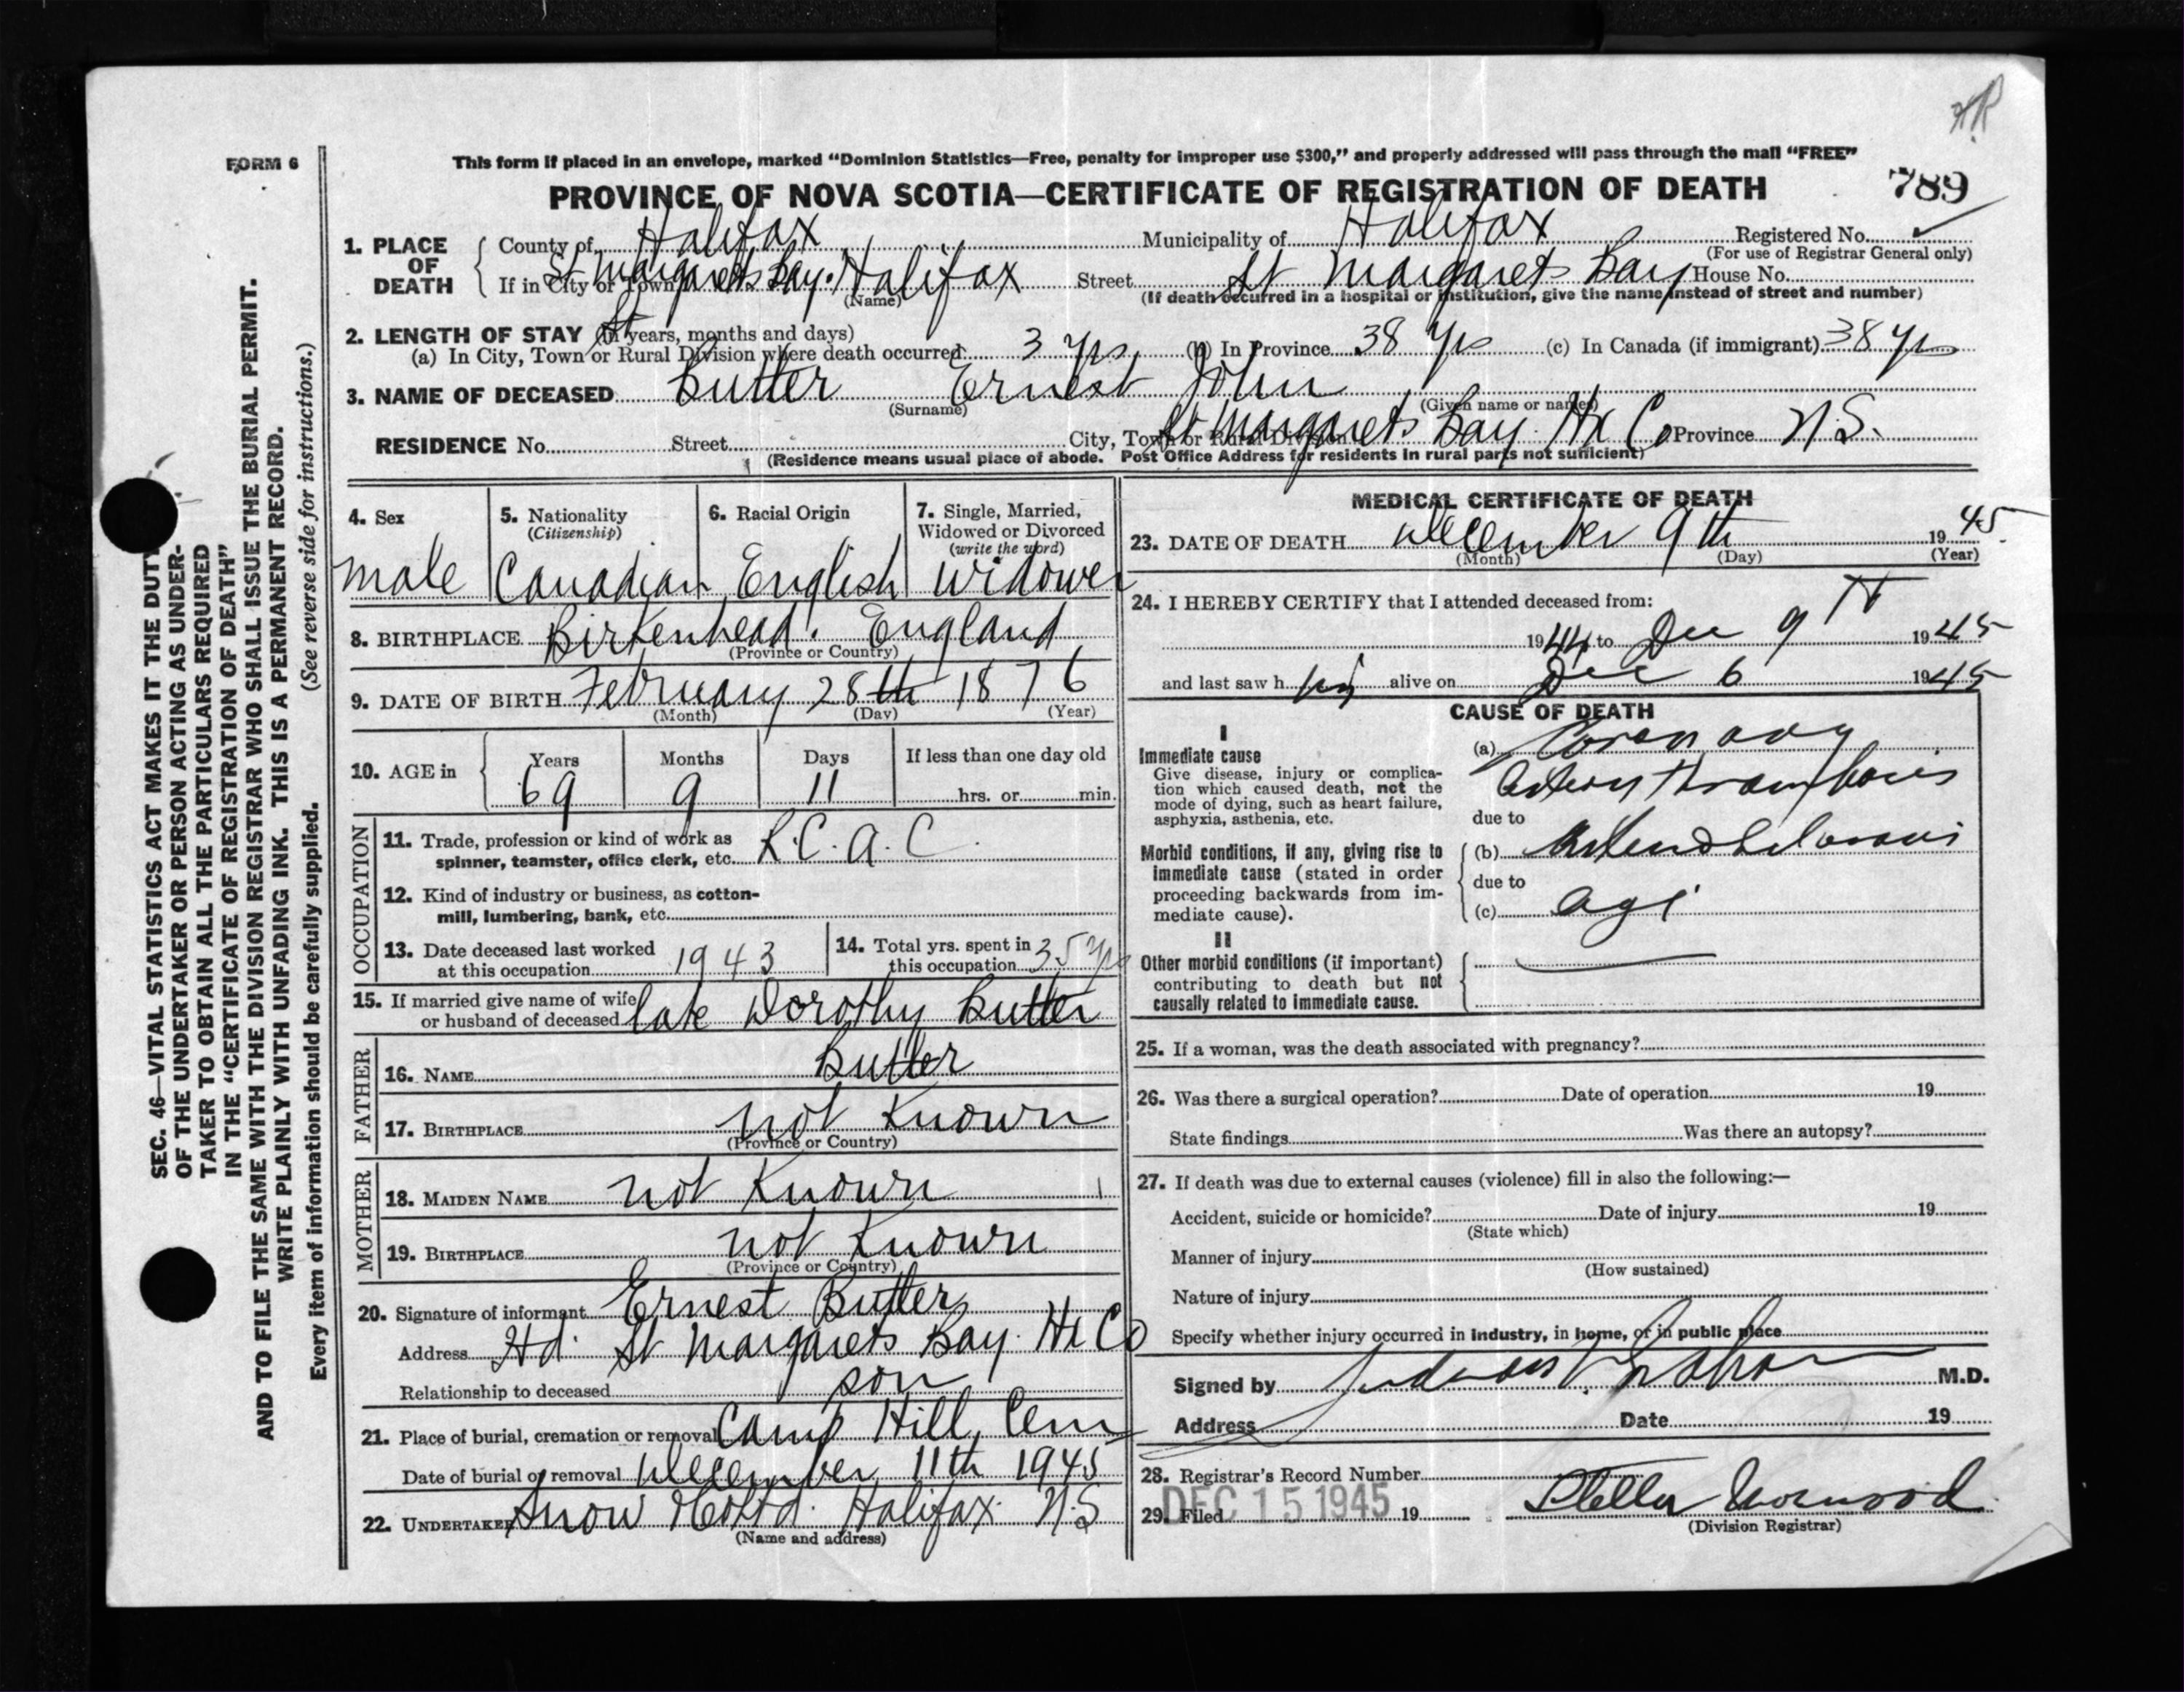 HR
FORM 6
This form if placed in an envelope, marked “Dominion Statistics—Free, penalty for improper use $300,” and properly addressed will pass through the mail “FREE”
PROVINCE OF NOVA SCOTIA—CERTIFICATE OF REGISTRATION OF DEATH 789
1. PLACE OF DEATH County of Halifax Municipality of Halifax Registered No. ✓
(For use of Registrar General only)
If in City or Town St Margarets Bay. Halifax Street St Margarets Bay House No.
(Name) (If death occurred in a hospital or institution, give the name instead of street and number)
2. LENGTH OF STAY (in years, months and days)
(a) In City, Town or Rural Division where death occurred 3 yrs. (b) In Province 38 yrs (c) In Canada (if immigrant) 38 yrs
3. NAME OF DECEASED Butler Ernest John
(Surname) (Given name or names)
RESIDENCE No. Street City, Town or Rural Division St Margarets Bay Hx Co Province N.S.
(Residence means usual place of abode. Post Office Address for residents in rural parts not sufficient)
4. Sex 5. Nationality (Citizenship) 6. Racial Origin 7. Single, Married, Widowed or Divorced (write the word)
male Canadian English Widower
8. BIRTHPLACE Birkenhead. England
(Province or Country)
9. DATE OF BIRTH February 28th 1876
(Month) (Day) (Year)
10. AGE in Years Months Days If less than one day old
69 9 11 hrs. or min.
OCCUPATION
11. Trade, profession or kind of work as
spinner, teamster, office clerk, etc. R.C.A.C.
12. Kind of industry or business, as cotton-
mill, lumbering, bank, etc.
13. Date deceased last worked at this occupation 1943 14. Total yrs. spent in this occupation 35 yrs
15. If married give name of wife
or husband of deceased late Dorothy Butler
FATHER
16. NAME Butler
17. BIRTHPLACE not Known
(Province or Country)
MOTHER
18. MAIDEN NAME not Known
19. BIRTHPLACE not Known
(Province or Country)
20. Signature of informant Ernest Butler
Address Hd. St Margarets Bay. Hx Co
Relationship to deceased son
21. Place of burial, cremation or removal Camp Hill, Cem
Date of burial or removal December 11th 1945
22. UNDERTAKER Snow & Co Ltd. Halifax N.S
(Name and address)
MEDICAL CERTIFICATE OF DEATH
23. DATE OF DEATH December 9th 1945
(Month) (Day) (Year)
24. I HEREBY CERTIFY that I attended deceased from:
1944 to Dec 9th 1945
and last saw h alive on Dec 6 1945
CAUSE OF DEATH
I
Immediate cause (a) Coronary
Give disease, injury or complica-
tion which caused death, not the
mode of dying, such as heart failure,
asphyxia, asthenia, etc.
artery thrombosis
due to
Morbid conditions, if any, giving rise to
immediate cause (stated in order
proceeding backwards from im-
mediate cause).
(b)
due to
(c) age
II
Other morbid conditions (if important)
contributing to death but not
causally related to immediate cause.
25. If a woman, was the death associated with pregnancy?
26. Was there a surgical operation? Date of operation 19
State findings Was there an autopsy?
27. If death was due to external causes (violence) fill in also the following:—
Accident, suicide or homicide? Date of injury 19
(State which)
Manner of injury
(How sustained)
Nature of injury
Specify whether injury occurred in industry, in home, or in public place
Signed by M.D.
Address Date 19
28. Registrar's Record Number
29. Filed DEC 15 1945 19 Stella
(Division Registrar)
SEC. 46—VITAL STATISTICS ACT MAKES IT THE DUTY
OF THE UNDERTAKER OR PERSON ACTING AS UNDER-
TAKER TO OBTAIN ALL THE PARTICULARS REQUIRED
IN THE “CERTIFICATE OF REGISTRATION OF DEATH”
AND TO FILE THE SAME WITH THE DIVISION REGISTRAR WHO SHALL ISSUE THE BURIAL PERMIT.
WRITE PLAINLY WITH UNFADING INK. THIS IS A PERMANENT RECORD.
Every item of information should be carefully supplied. (See reverse side for instructions.)